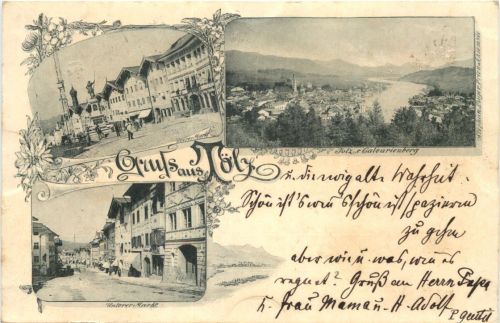 Gruss aus Tölz
Tölz v. Calvarienberg
Unterer Markt
u. die ewig alte Wahrheit.
Schön ist's wenn's schön ist, spazieren
zu gehn
aber wie u. was, wenn es
regnet? Gruß an Herrn Papa
u. Frau Mama u. H. Adolf